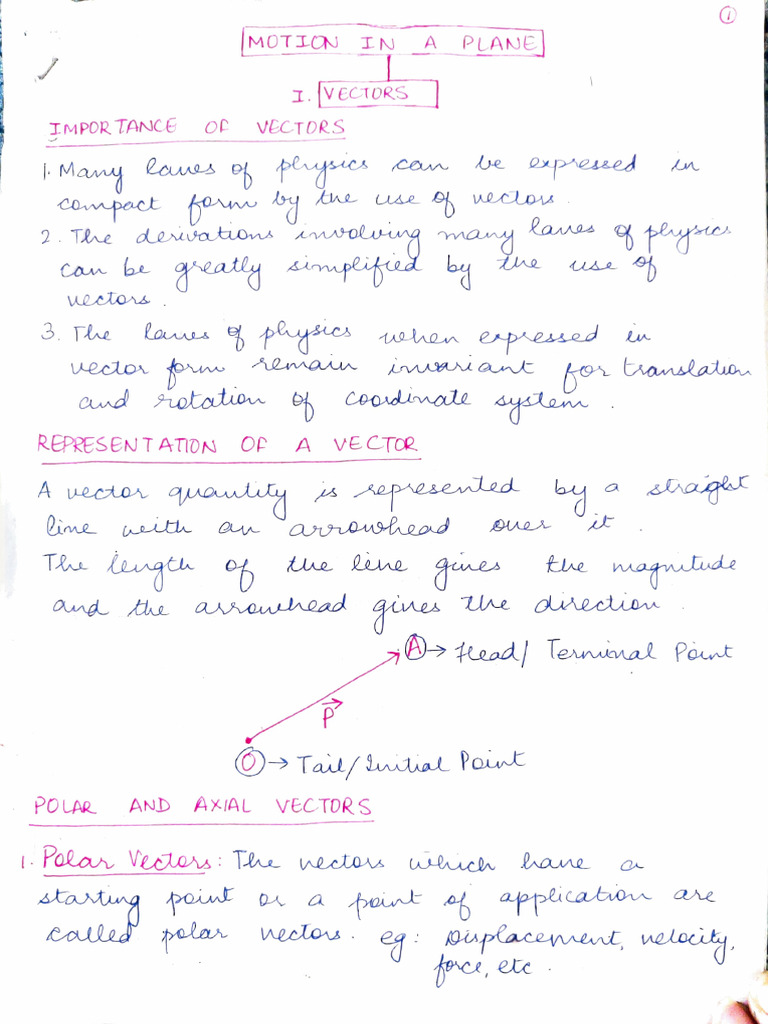 1
MOTION IN A PLANE
I. VECTORS
IMPORTANCE OF VECTORS
1. Many laws of physics can be expressed in
compact form by the use of vectors.
2. The derivations involving many laws of physics
can be greatly simplified by the use of
vectors.
3. The laws of physics when expressed in
vector form remain invariant for translation
and rotation of coordinate system.
REPRESENTATION OF A VECTOR
A vector quantity is represented by a straight
line with an arrowhead over it.
The length of the line gives the magnitude
and the arrowhead gives the direction.
A → Head/ Terminal Point
P
O → Tail/Initial Point
POLAR AND AXIAL VECTORS
1. Polar Vectors: The vectors which have a
starting point or a point of application are
called polar vectors. eg: Displacement, velocity,
force, etc.